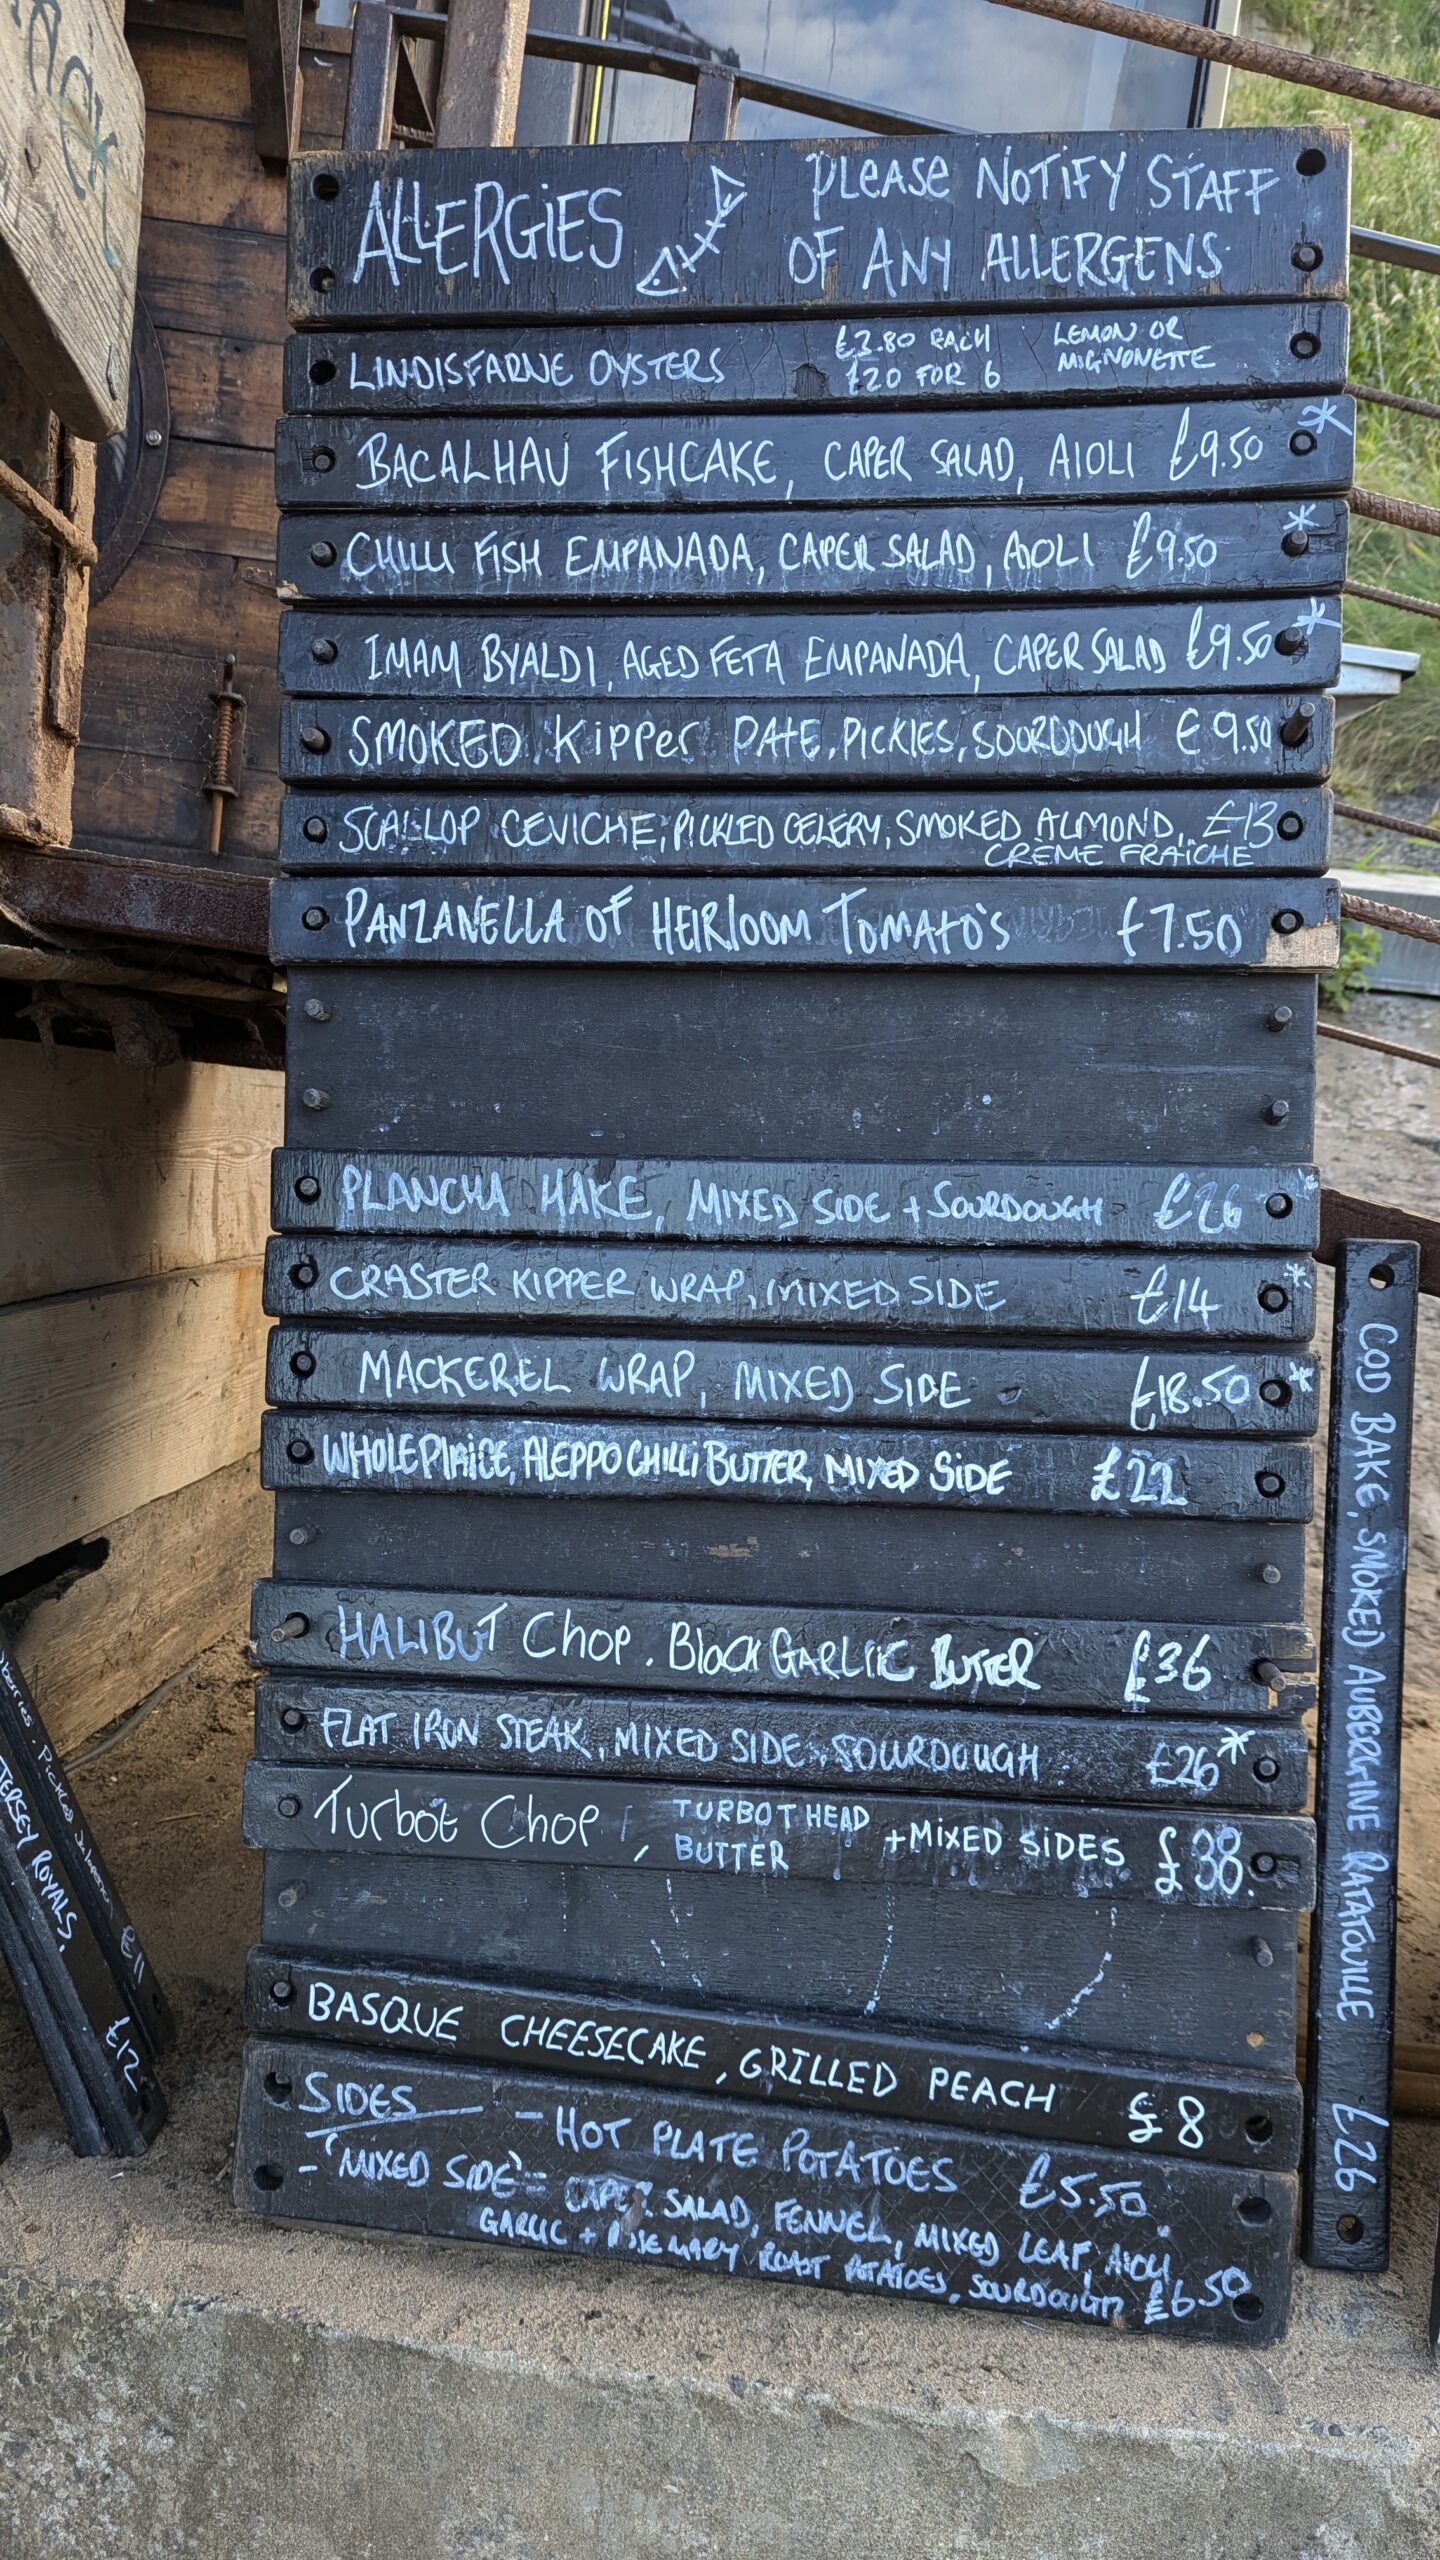 ALLERGIES
PLEASE NOTIFY STAFF
OF ANY ALLERGENS
LINDISFARNE OYSTERS £3.80 EACH LEMON OR
£20 FOR 6 MIGNONETTE
BACALHAU FISHCAKE, CAPER SALAD, AIOLI £9.50 *
CHILLI FISH EMPANADA, CAPER SALAD, AIOLI £9.50 *
IMAM BYALDI, AGED FETA EMPANADA, CAPER SALAD £9.50 *
SMOKED KiPPer PATE, PICKLES, SOURDOUGH £9.50
SCALLOP CEVICHE, PICKLED CELERY, SMOKED ALMOND, £13
CREME FRAICHE
PANZANELLA OF HEIRLOOM TOMATO'S £7.50
PLANCHA HAKE, MIXED SIDE + SOURDOUGH £26
CRASTER KIPPER WRAP, MIXED SIDE £14 *
MACKEREL WRAP, MIXED SIDE £18.50 *
WHOLE PLAICE, ALEPPO CHILLI BUTTER, MIXED SIDE £22
HALIBUT Chop. BlacK GARLIC BUTTER £36
FLAT IRON STEAK, MIXED SIDE, SOURDOUGH £26 *
Turbot Chop, TURBOT HEAD
BUTTER +MIXED SIDES £38.
BASQUE CHEESECAKE, GRILLED PEACH £8
SIDES - HOT PLATE POTATOES £5.50
- 'MIXED SIDE' = CAPER SALAD, FENNEL, MIXED LEAF, AIOLI
GARLIC + ROSEMARY ROAST POTATOES, SOURDOUGH £6.50
COD BAKE, SMOKED AUBERGINE RATATOUILLE £26
Pickled £11
JERSEY ROYALS. £12